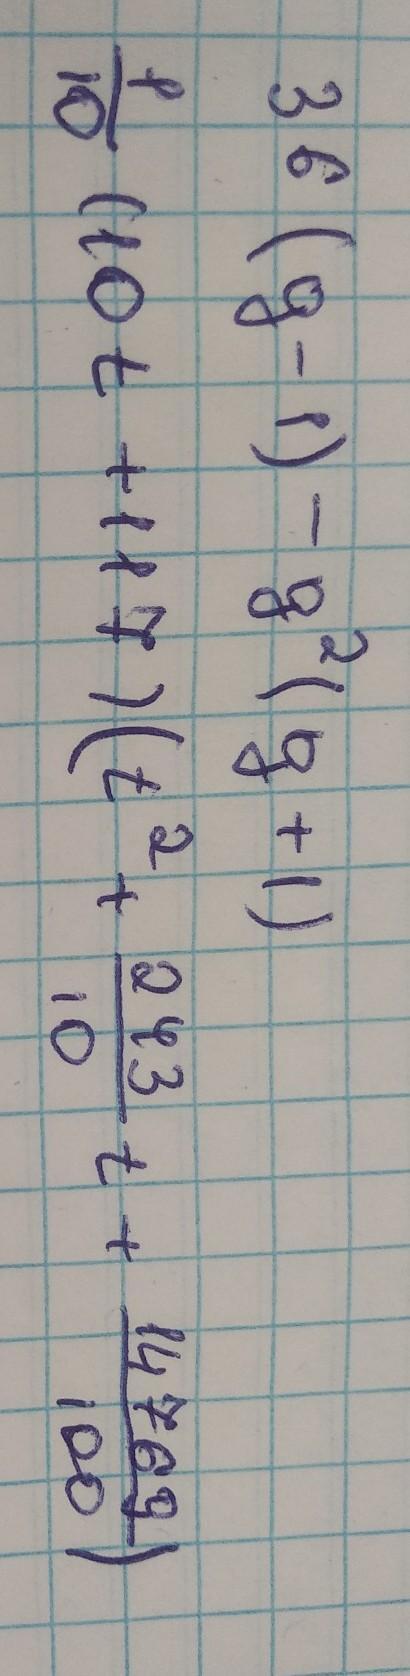 36(g-1)-g²(g+1)
1/10 (10t+117)(t²+243/10 t+14769/100)